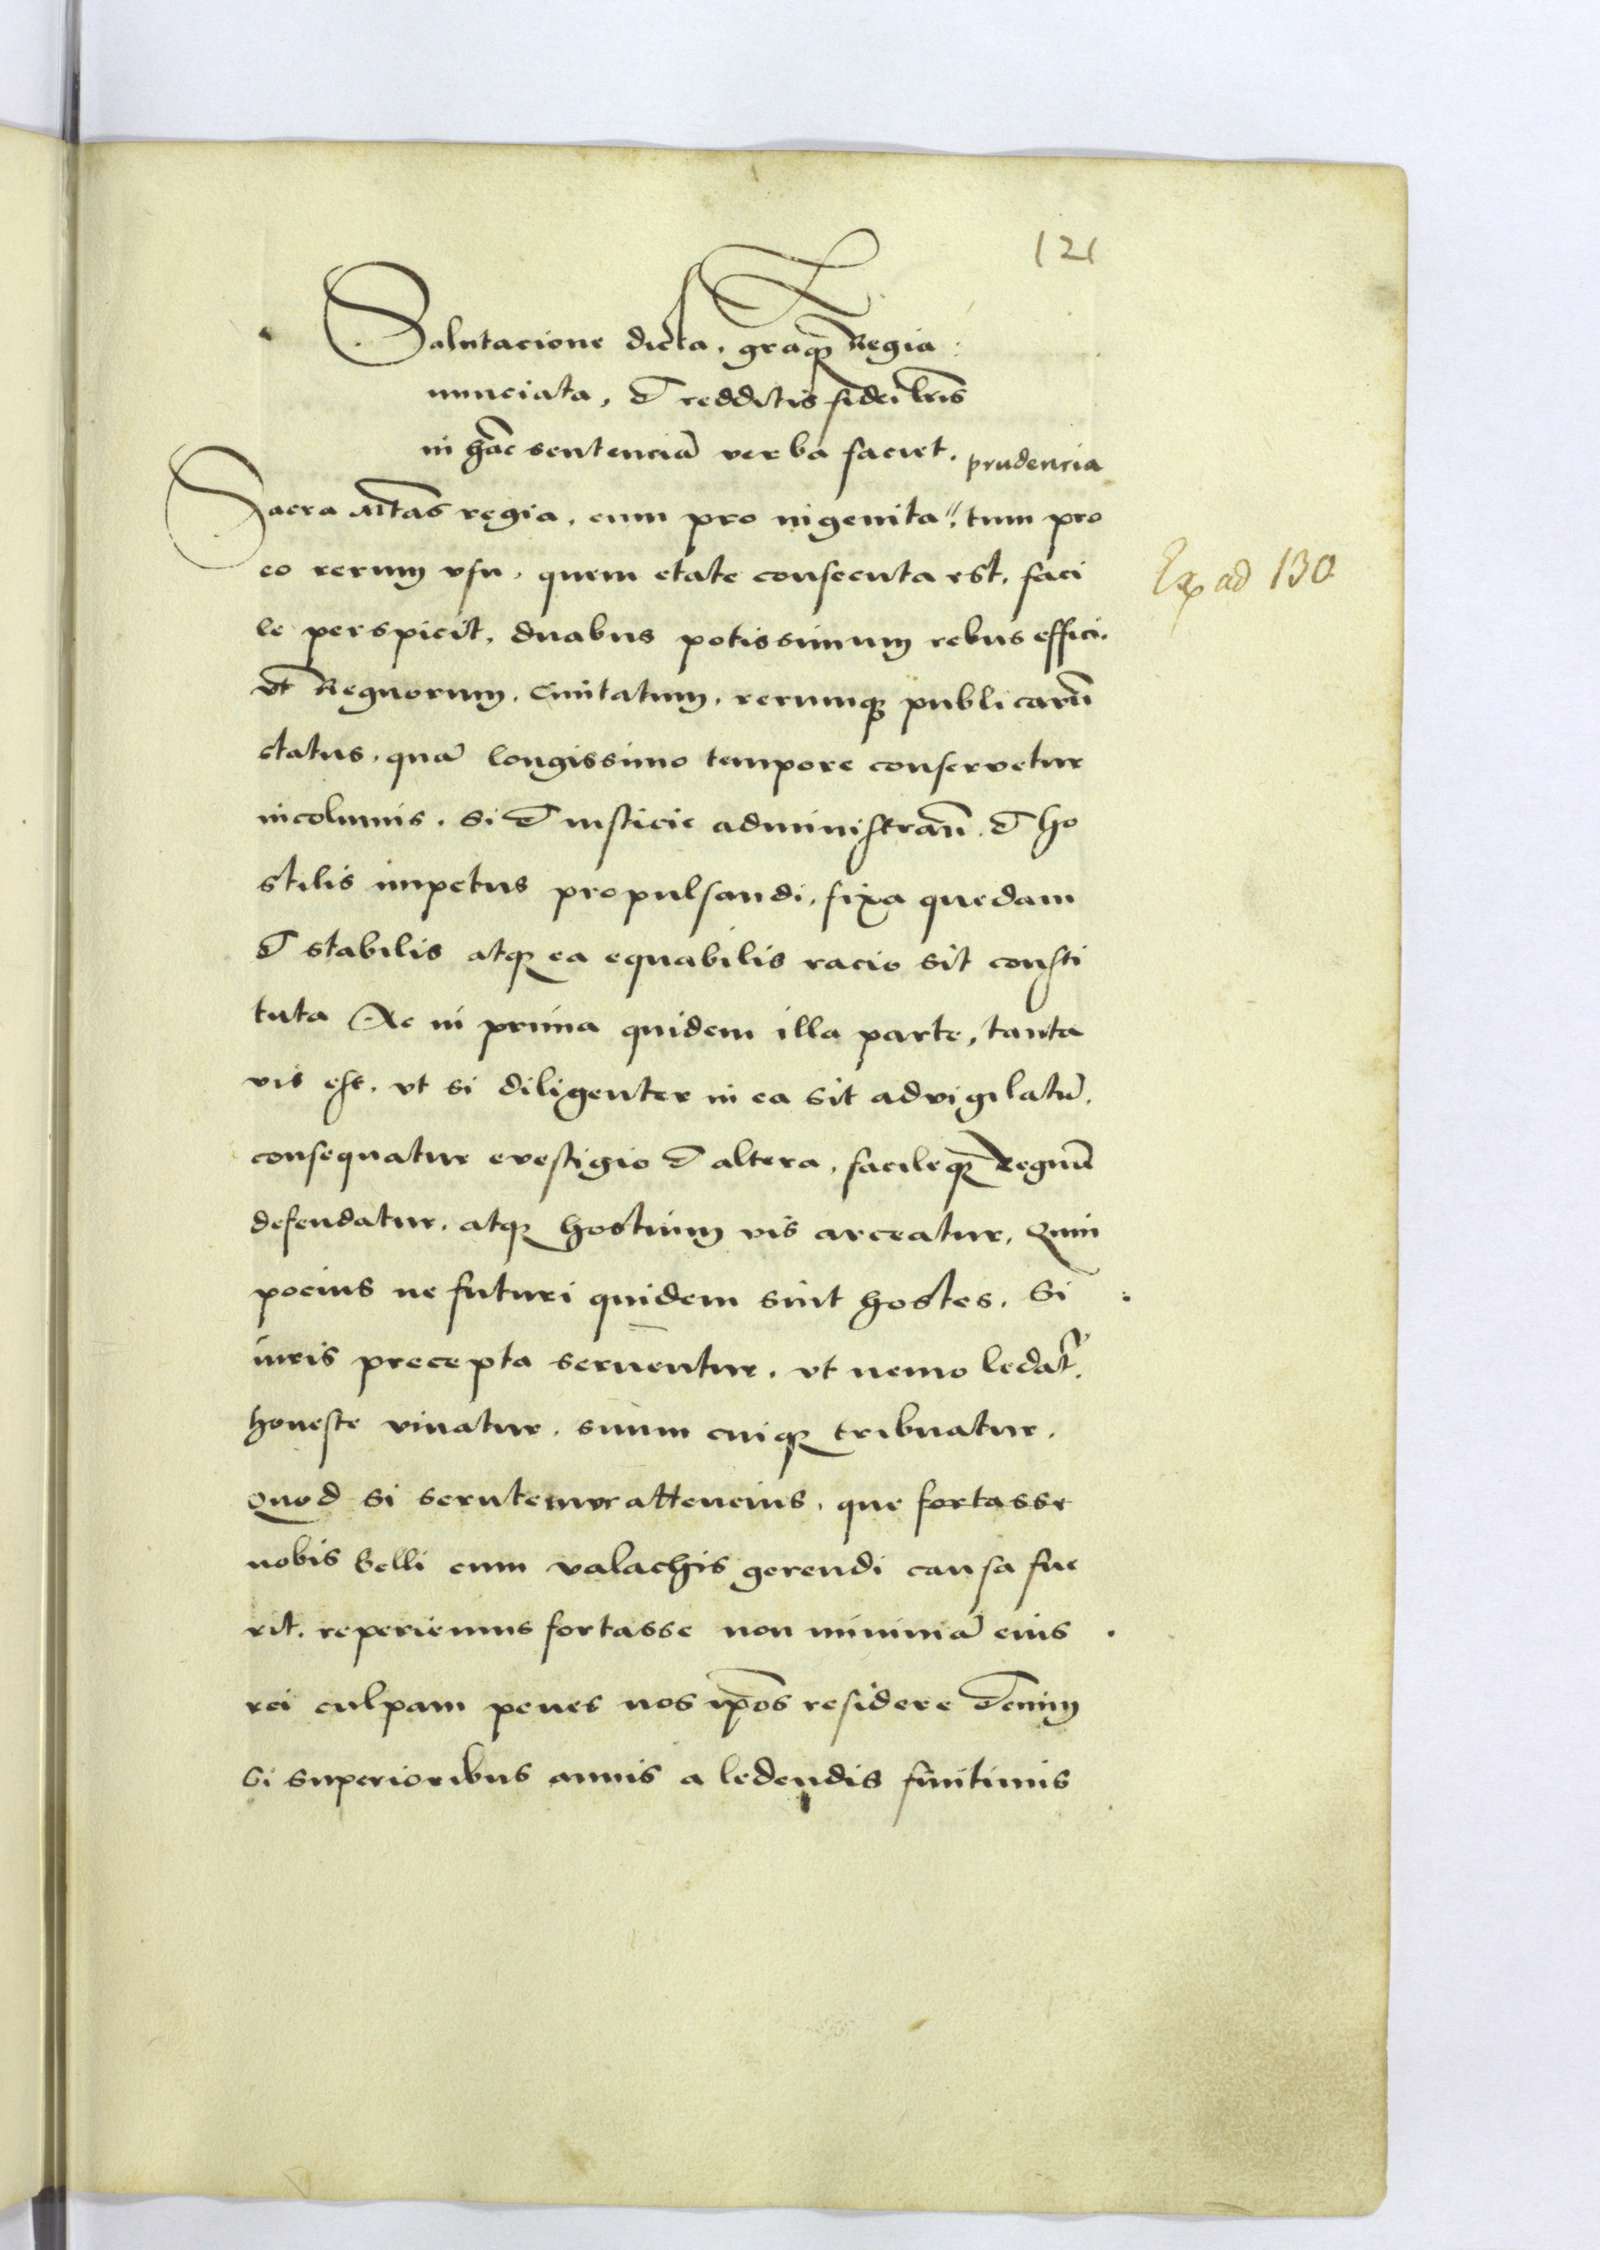 121
Salutacione dicta, gr̄aq₃ Regia
nunciata, et redditis fidei l̄ris
in hāc sentenciā verba faciet. prudencia
Sacra M̄tas regia, cum pro ingenita, tum pro
eo rerum vsu, quem etate consecuta est, faci
le perspicit, duabus potissimum rebus effici.
vt Regnorum, Ciuitatum, rerumq₃ publicarū
status, quā longissimo tempore conservetur
incolumis. Si et iusticie administran̄. et ho
stilis impetus propulsandi, fixa quedam
et stabilis atq₃ ea equabilis racio sit consti
tuta Ac in prima quidem illa parte, tanta
vis est, vt si diligenter in ea sit advigilatū,
consequatur evestigio et altera, facileq₃ Regnū
defendatur, atq₃ hostium vis arceatur, Quin
pocius ne futuri quidem sint hostes. Si
iuris precepta seruentur, vt nemo ledat̄.
honeste viuatur, suum cuiq₃ tribuatur.
Quod si scrutemur attencius, que fortasse
nobis belli cum valachis gerendi causa fue
rit. reperiemus fortasse non minimā eius
rei culpam penes nos ip̄os residere Etenim
si superioribus annis a ledendis finitimis
Ex ad 130